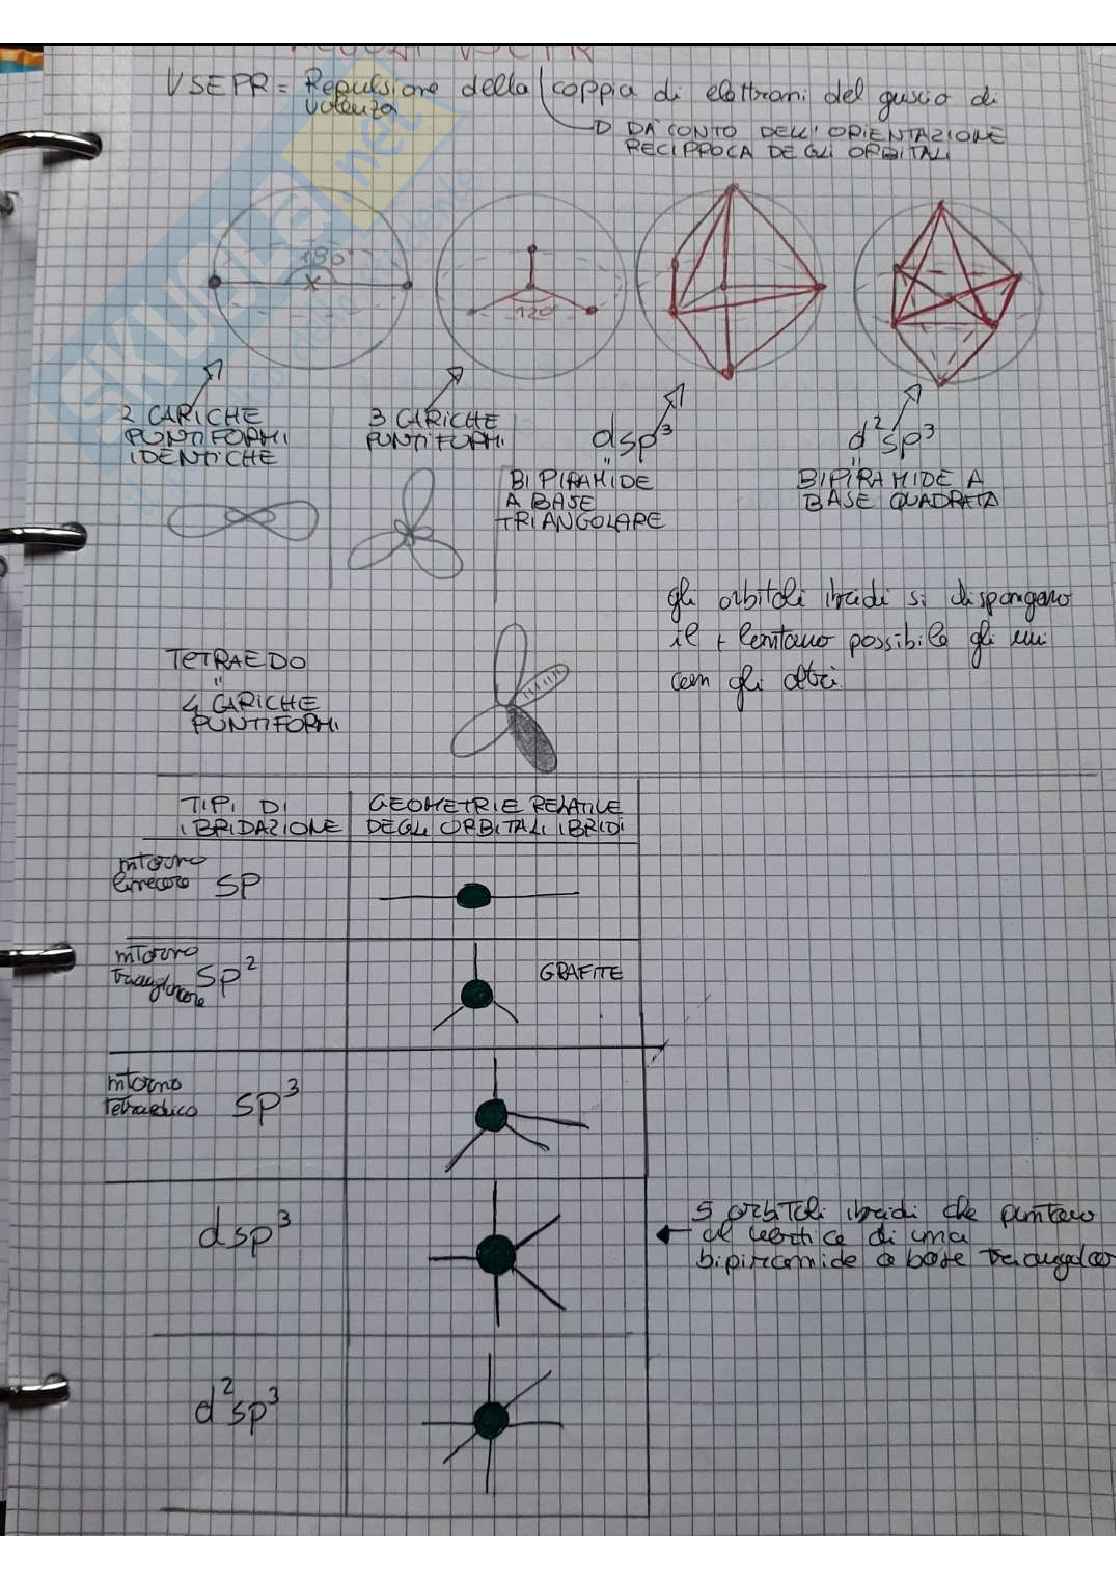 VSEPR = Repulsione della coppia di elettroni del guscio di
valenza
DA' CONTO DELL'ORIENTAZIONE
RECIPPROCA DEGLI ORBITALI
180°
120°
2 CARICHE
PUNTIFORMI
IDENTICHE
3 CARICHE
PUNTIFORMI
dsp³
"
BIPIRAMIDE
A BASE
TRIANGOLARE
d²sp³
"
BIPIRAMIDE A
BASE QUADRATA
gli orbitali ibridi si dispongono
il + lontano possibile gli uni
con gli altri
TETRAEDO
"
4 CARICHE
PUNTIFORMI
TIPI DI
IBRIDAZIONE
GEOMETRIE RELATIVE
DEGLI ORBITALI IBRIDI
intorno
lineare sp
intorno
triangolare sp²
GRAFITE
intorno
tetraedico sp³
dsp³
5 orbitali ibridi che puntano
al vertice di una
bipiramide a base triangolare
d²sp³
SKUOLA.net